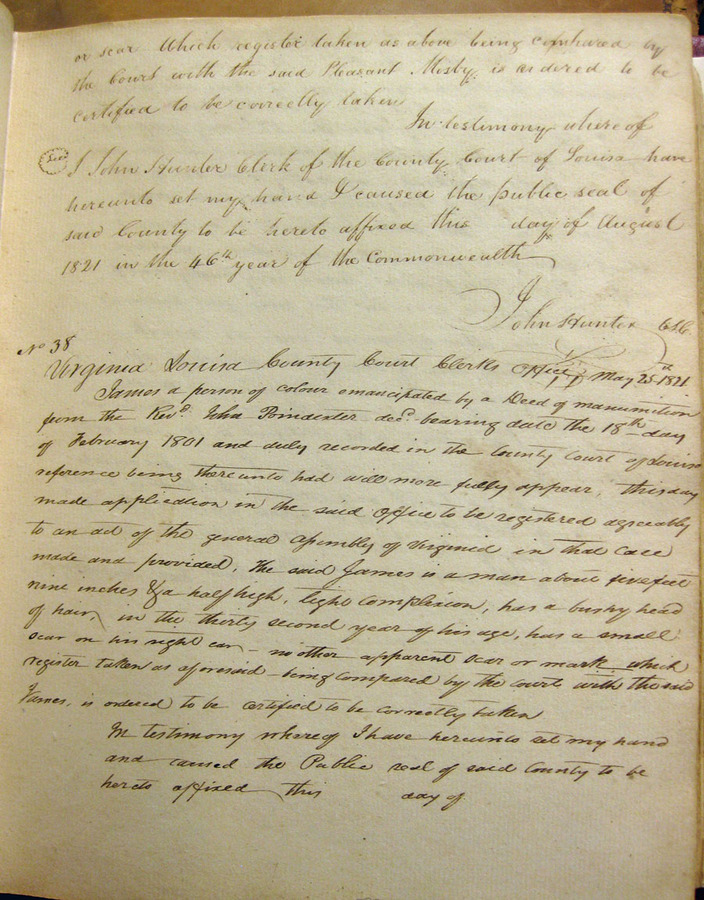 or scar Which register taken as above being compared by
the Court with the said Pleasant Mosby, is ordered to be
certified to be correctly taken
In testimony where of
Seal I John Hunter Clerk of the County Court of Louisa have
hereunto set my hand & caused the public seal of
said County to be hereto affixed this day of August
1821 in the 46th year of the Commonwealth
John Hunter C.L.C.
No 38
Virginia Louisa County Court Clerks Office, May 25th 1821
James a person of colour emancipated by a Deed of manumition
from the Revd. John Poindexter decd. bearing date the 18th day
of February 1801 and duly recorded in the County Court of Louisa
reference being thereunto had will more fully appear, this day
made application in the said Office to be registered agreeably
to an act of the general Assembly of Virginia in that case
made and provided, The said James is a man about five feet
nine inches & a half high, light complexion, has a bushy head
of hair, in the thirty second year of his age, has a small
scar on his right ear - no other apparent scar or mark which
register taken as aforesaid - being compared by the court with the said
James, is ordered to be certified to be correctly taken
In testimony whereof I have hereunto set my hand
and caused the Public seal of said County to be
hereto affixed this day of